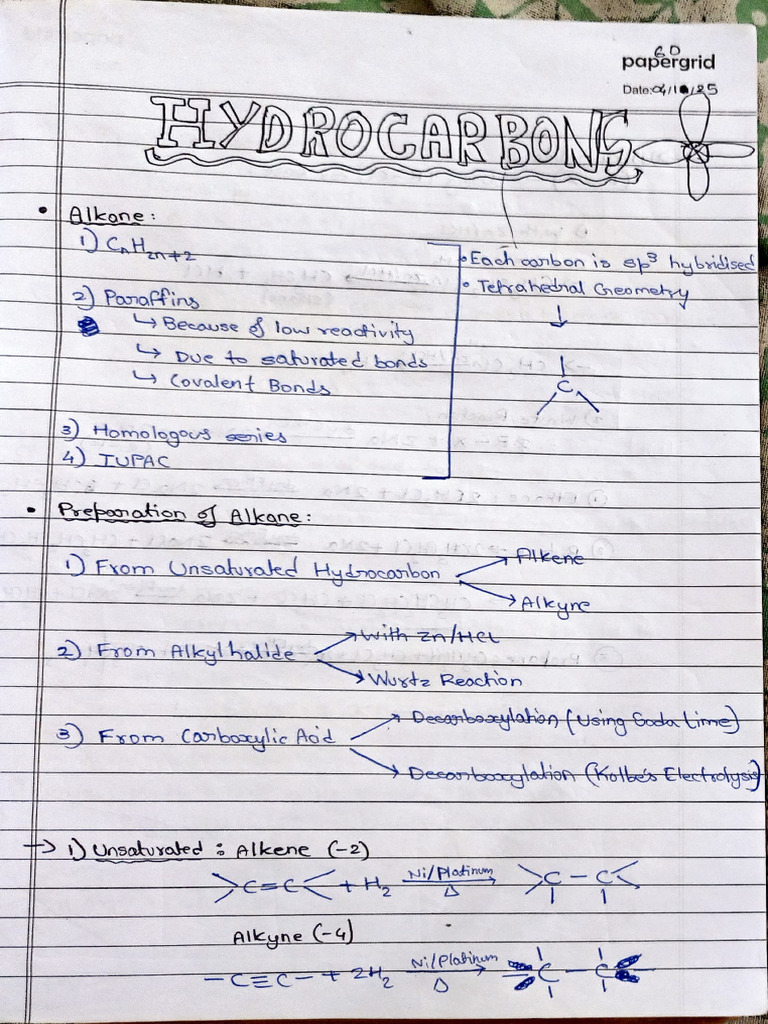 GD
papergrid
Date: 04/10/25
HYDROCARBONS
• Alkane:
1) CnH2n+2
• Each carbon is sp3 hybridised
• Tetrahedral Geometry
2) Paraffins
↳ Because of low reactivity
↳ Due to saturated bonds
↳ Covalent Bonds
C
3) Homologous series
4) IUPAC
• Preparation of Alkane:
1) From Unsaturated Hydrocarbon
Alkene
Alkyne
2) From Alkyl halide
With Zn/HCl
Wurtz Reaction
3) From Carboxylic Acid
Decarboxylation (Using Soda Lime)
Decarboxylation (Kolbe's Electrolysis)
→ 1) Unsaturated : Alkene (-2)
>C=C< + H2 Ni/Platinum Δ → >C-C<
Alkyne (-4)
-C≡C- + 2H2 Ni/Platinum Δ → C-C